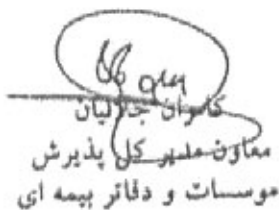 کامران جلالیان
معاون مدیر کل پذیرش
موسسات و دفاتر بیمه ای